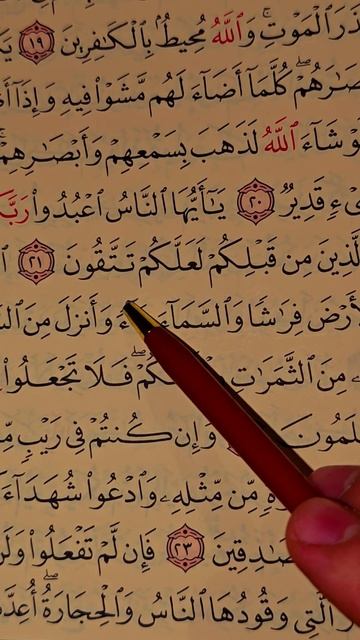 ذَرَ ٱلْمَوْتِۚ وَٱللَّهُ مُحِيطُۢ بِٱلْكَٰفِرِينَ ١٩
كُلَّمَآ أَضَآءَ لَهُم مَّشَوْا۟ فِيهِ وَإِذَآ
شَآءَ ٱللَّهُ لَذَهَبَ بِسَمْعِهِمْ وَأَبْصَٰرِهِمْۚ
قَدِيرٌ ٢٠ يَٰٓأَيُّهَا ٱلنَّاسُ ٱعْبُدُوا۟
ٱلَّذِينَ مِن قَبْلِكُمْ لَعَلَّكُمْ تَتَّقُونَ ٢١
فِرَٰشًا وَٱلسَّمَآءَ وَأَنزَلَ مِنَ
مِنَ ٱلثَّمَرَٰتِ فَلَا تَجْعَلُوا۟
وَإِن كُنتُمْ فِى رَيْبٍ
مِّن مِّثْلِهِۦ وَٱدْعُوا۟ شُهَدَآءَ
٢٣ فَإِن لَّمْ تَفْعَلُوا۟
ٱلَّتِى وَقُودُهَا ٱلنَّاسُ وَٱلْحِجَارَةُۖ